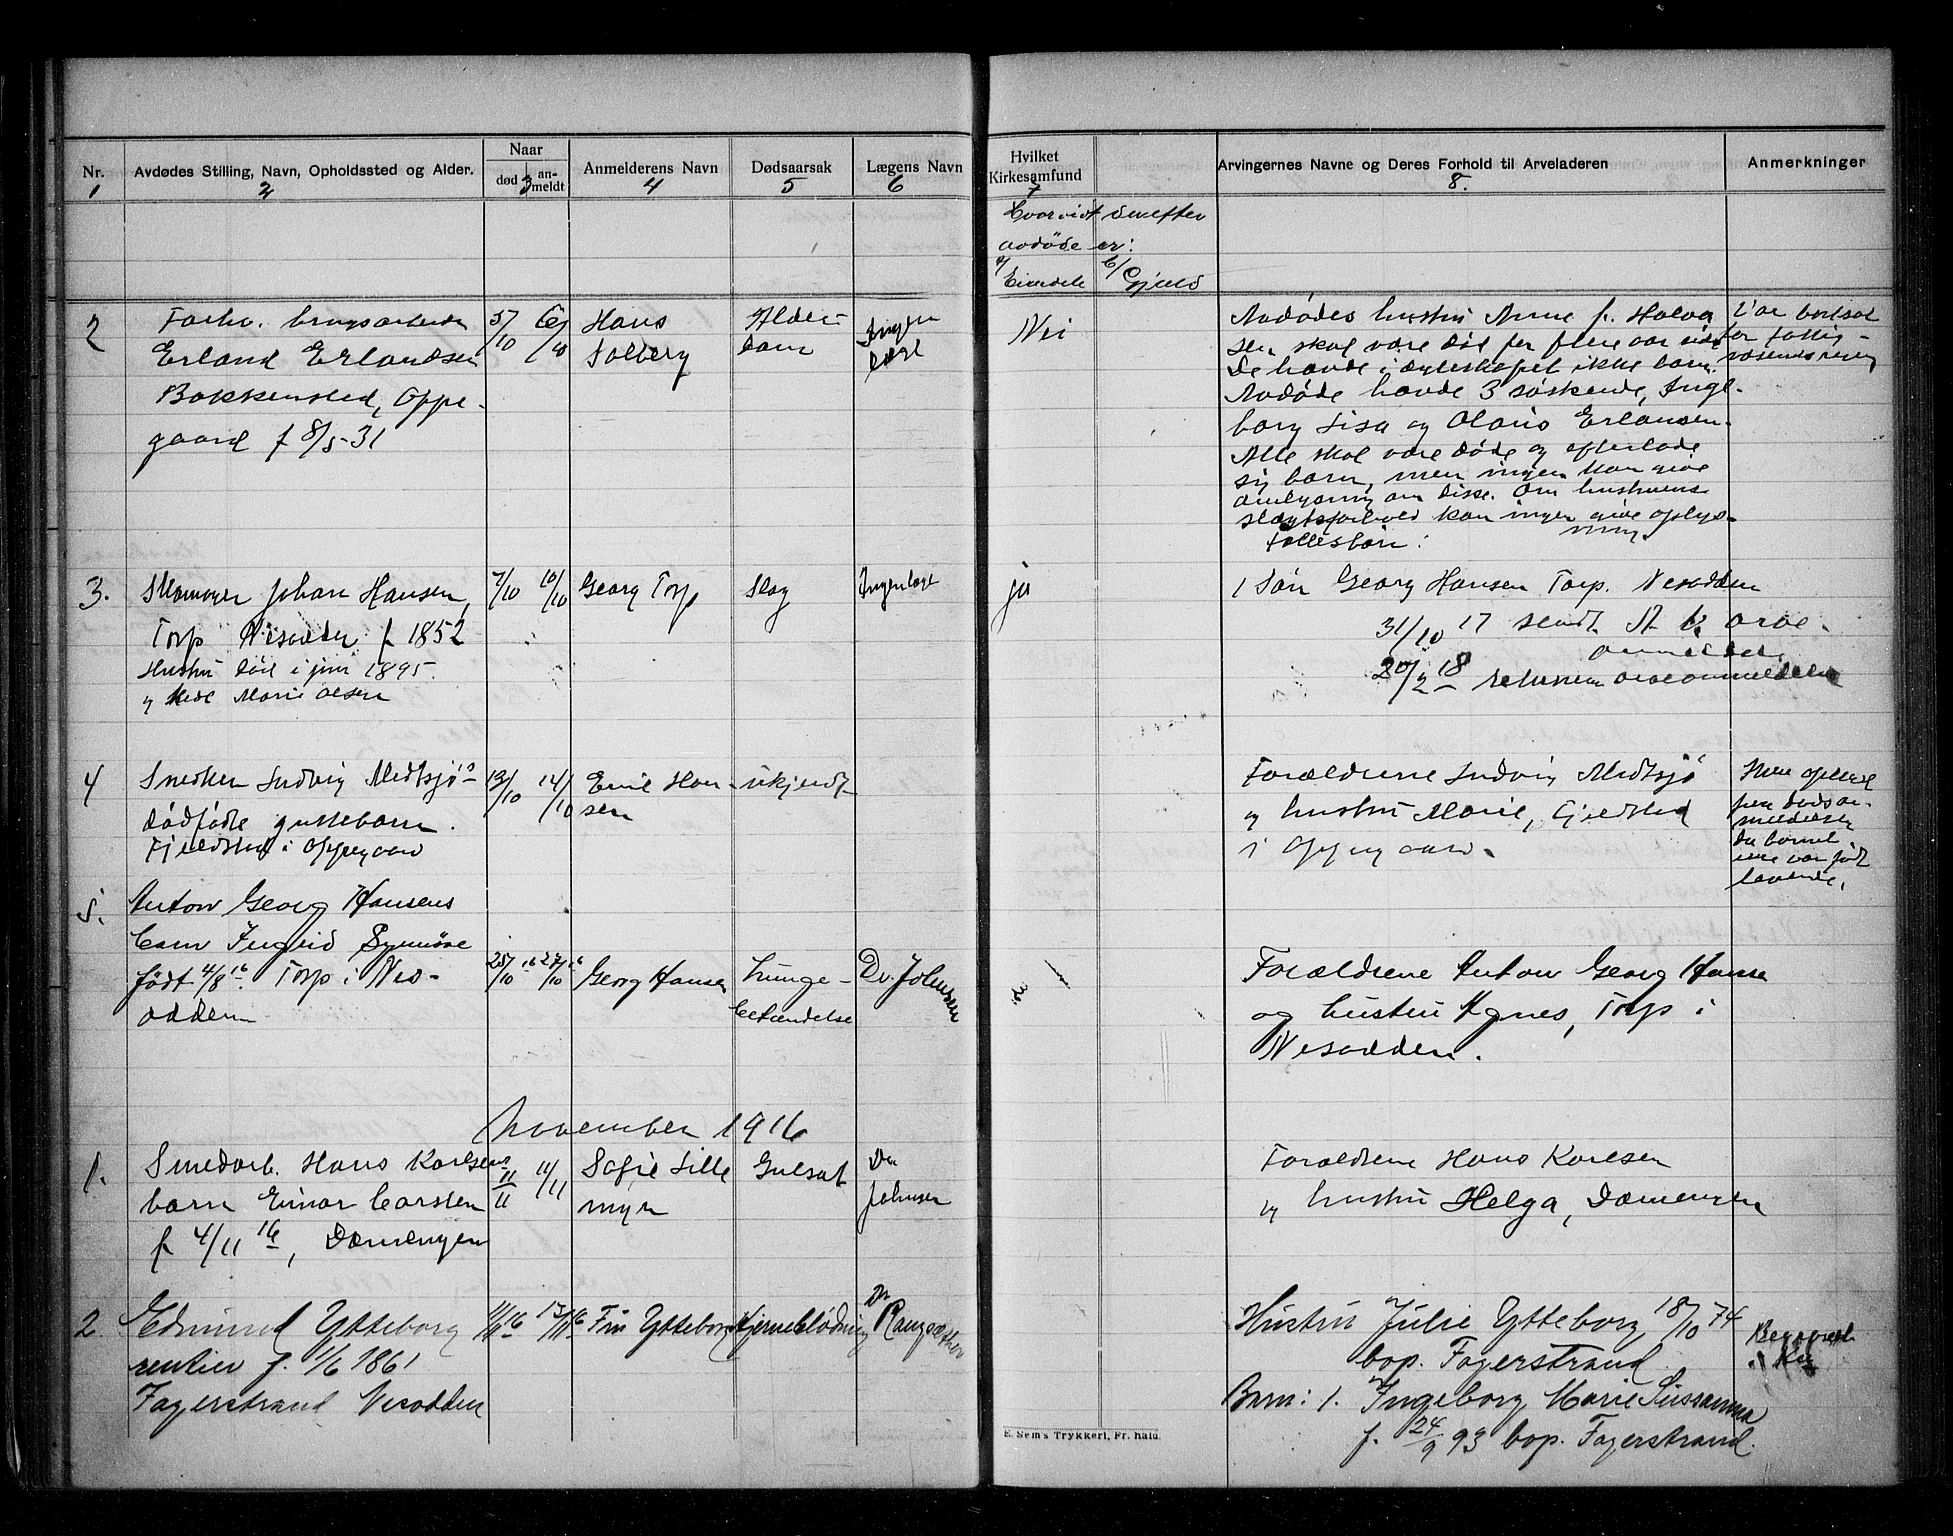 Nr.
Avdødes Stilling, Navn, Opholdssted og Alder.
Naar
død
an-
meldt
Anmelderens Navn
Dødsaarsak
Lægens Navn
Hvilket
Kirkesamfund
Arvingernes Navne og Deres Forhold til Arveladeren
Anmerkninger
1 2 3 4 5 6 7 8.
Hvorvidt der efter
avdøde er:
a/ Eiendele b/ Gjæld
2
Forhv. brugsarbeider
Erland Erlandsen
Bakkensted, Oppe-
gaard f 8/5-31
5/10
6/10
Hans
Solberg
Alder-
dom
Ingen
læge
Nei
Avdødes hustru Anne f. Halvor
sen skal være død for flere aar siden
De havde i ægteskapet ikke barn.
Avdøde havde 3 søskende, Inge-
borg Lisa og Olaus Erlansen.
Alle skal være døde og efterlade
sig barn, men ingen kan give
oplysning om disse. Om hustruens
slægtsforhold kan ingen give oplys-
ning.
Var bortsat
for fattig-
væsenets regning
Fællesbarn:
3.
Johan Hansen,
Torp Nesodden f 1852
Hustru død i juni 1895.
og hed Marie Olsen
7/10
10/10
Georg Torp
Slag
Ingen læge
ja
1 Søn Georg Hansen Torp. Nesodden
31/10 17 sendt arve-
anmeldel.
20/2 18 arveanmeldelse
4
Snedker Ludvig Midtsjø's
dødfødte guttebarn.
Fjeldstad i Oppegaard
13/10
14/10
Emil Han-
sen
ukjendt
Forældrene Ludvig Midtsjø
og hustru Marie, Fjeldstad
i Oppegaard.
dødsan-
meldelsen
da barnet
ikke var født
levende.
5.
Anton Georg Hansens
barn Ingrid Synnøve
født 4/8 16 Torp i Nes-
odden
25/10 16
27/10 16
Georg Hansen
Lunge-
betændelse
Dr. Johnsen
Forældrene Anton Georg Hansen
og hustru Agnes, Torp i
Nesodden.
November 1916
1.
Smedarb. Hans Karlsens
barn Einar Carsten
f 4/11 16, Dæmengen
11/11
11/11
Sofie Lille
myr
Gulsot
Dr
Johnsen
Forældrene Hans Karlsen
og hustru Helga, Dæmengen
2
Edmund Ytteborg
rentier f. 1/6 1861
Fagerstrand Nesodden
11/11 16
13/11 16
Fru Ytteborg
Hjerneblødning
Dr
Rangsæther
Hustru Julie Ytteborg, 18/10 74
bop. Fagerstrand
Barn: 1. Ingeborg Marie Sussanna
f. 24/9 93 bop. Fagerstrand.
E. Sem's Trykkeri, Fr.hald.